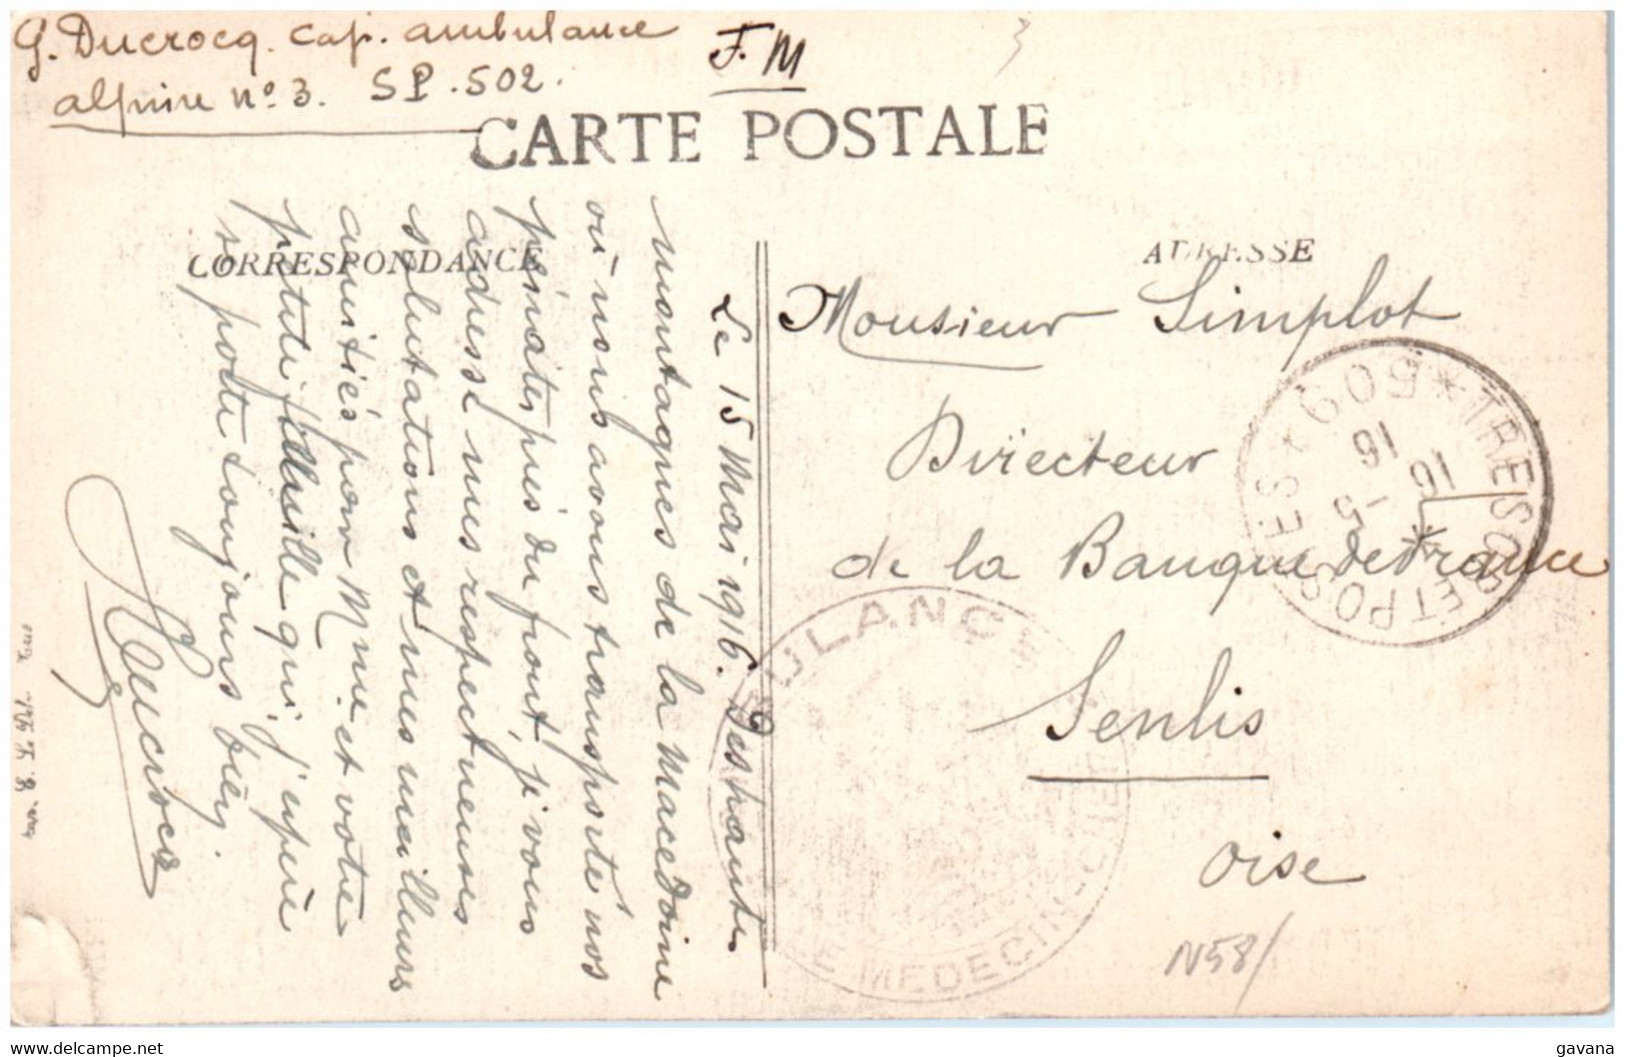 G. Ducrocq. Cap. ambulance
alpine nº 3. SP. 502.
F. M
CARTE POSTALE
CORRESPONDANCE
ADRESSE
Le 15 Mai 1916. Des hautes
montagnes de la Macedoine
où nous avons transporté nos
pénates, près du front, je vous
adresse mes respectueuses
salutations et mes meilleurs
amitiés pour Mme et votre
petite famille qui, j'espère
se porte toujours bien.
Ducrocq
Monsieur Simplot
Directeur
de la Banque de France
Senlis
Oise
TRESOR ET POSTES * 509 *
16
16 - 5
AMBULANCE
LE MEDECIN-CHEF
N58/
https://www.delcampe.net
gavana